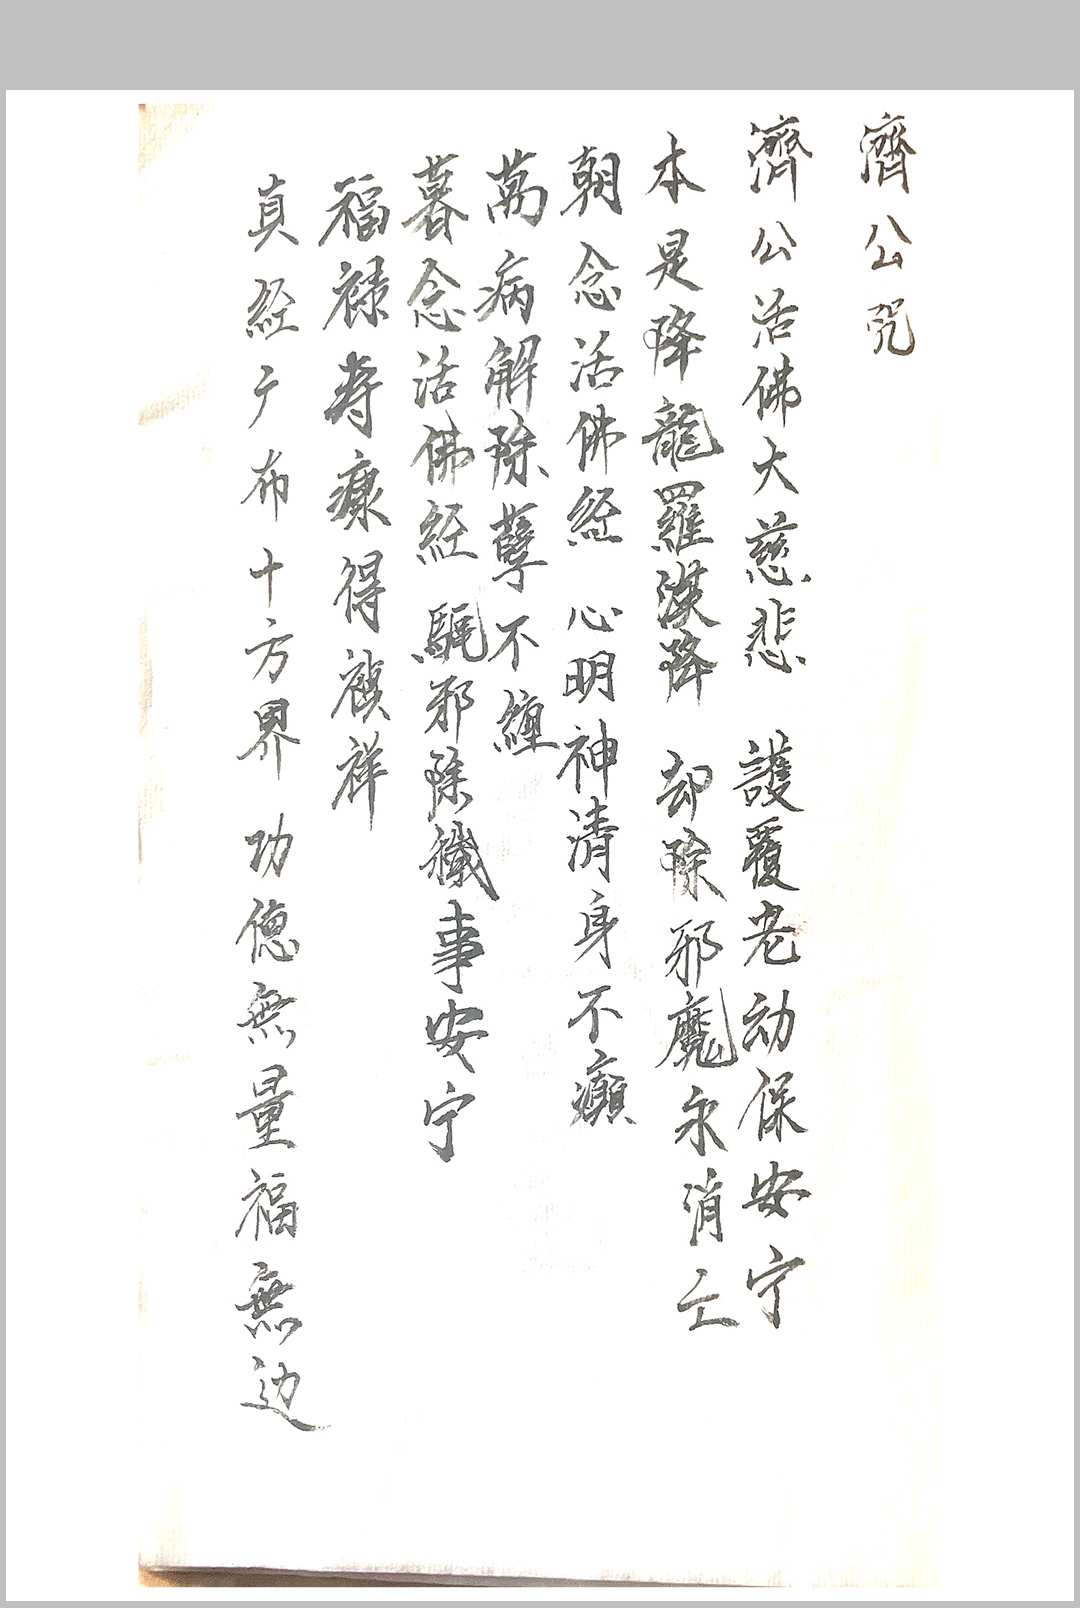 濟公咒
濟公活佛大慈悲 護覆老幼保安宁
本是降龍羅漢降 却除邪魔永消亡
朝念活佛經 心明神清身不癲
萬病解除孽不纏
暮念活佛經 驅邪除穢事安宁
福禄寿康得禎祥
真経广布十方界 功德無量福無边